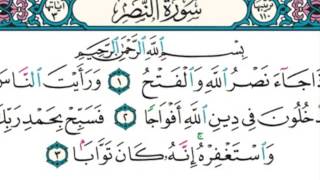 ترتيبها ١١٠ سورة النصر آياتها ٣
بِسْمِ ٱللَّهِ ٱلرَّحْمَٰنِ ٱلرَّحِيمِ
ذَا جَآءَ نَصْرُ ٱللَّهِ وَٱلْفَتْحُ ١ وَرَأَيْتَ ٱلنَّاسَ
دْخُلُونَ فِى دِينِ ٱللَّهِ أَفْوَاجًا ٢ فَسَبِّحْ بِحَمْدِ رَبِّكَ
وَٱسْتَغْفِرْهُ إِنَّهُۥ كَانَ تَوَّابًۢا ٣